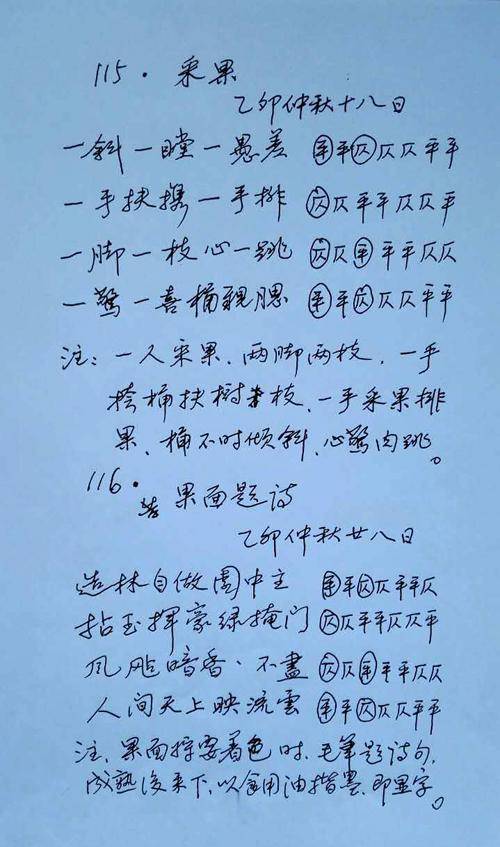 115. 采果
乙卯仲秋十八日
一斜一瞠一愚羞 ㊥平㊥仄仄平平
一手扶攜一手排 仄仄平平仄仄平
一脚一枝心一跳 仄仄平平平仄仄
一驚一喜桶親腮 平平仄仄仄平平
注：一人采果，两脚两枝，一手
挎桶扶樹枝，一手采果排
果，桶不时倾斜，心驚肉跳。
116. 苹果面题诗
乙卯仲秋廿八日
造林自做園中主 平平仄仄平平仄
拈玉揮豪绿掩门 仄仄平平仄仄平
风飐暗香·不盡 仄仄平平平仄仄
人间天上映流雲 平平仄仄仄平平
注，果面将要着色时，毛筆题诗句，
成熟後来下，以食用油揩墨，即显字。